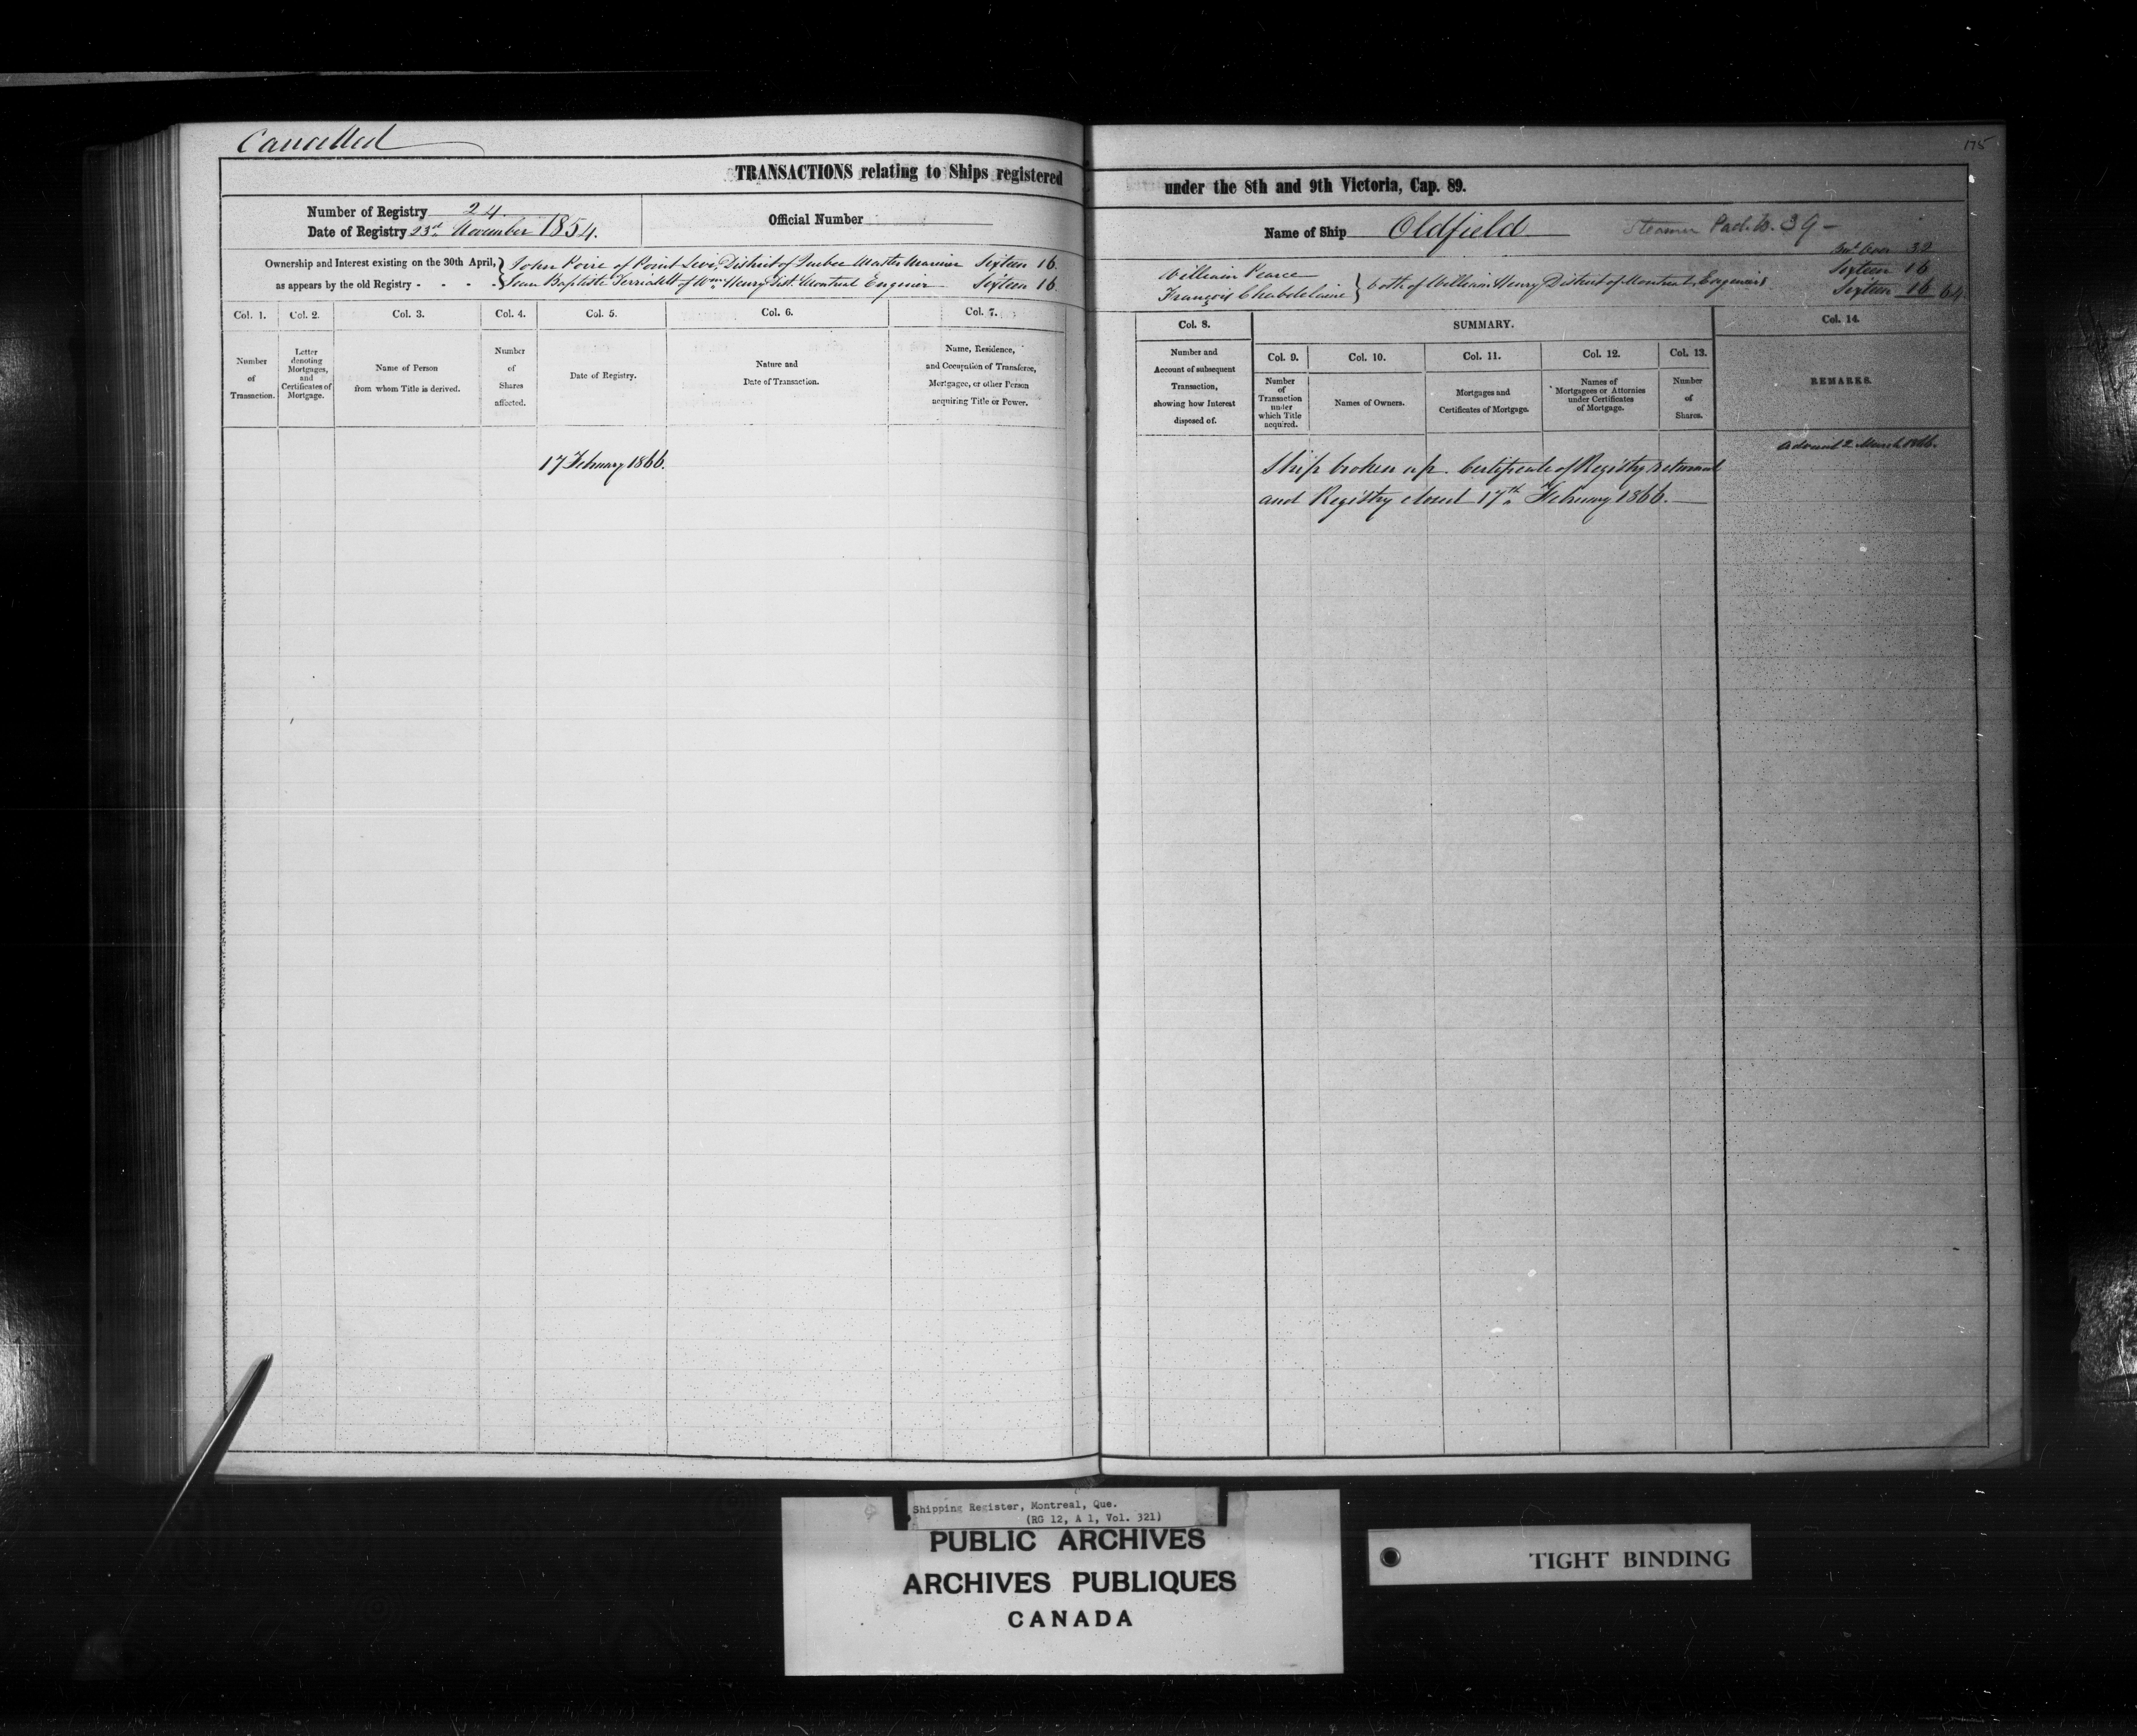 Cancelled
175
TRANSACTIONS relating to Ships registered under the 8th and 9th Victoria, Cap. 89.
Number of Registry 24.
Date of Registry 23rd November 1854.
Official Number
Name of Ship Oldfield Steamer 39 -
Ownership and Interest existing on the 30th April, as appears by the old Registry - - - -
John Poire of Point Levi, District of Quebec Master Mariner Sixteen 16.
Jean Baptiste of Wm Henry Dist. Montreal Engineer Sixteen 16.
Brot Over 32
William Pearce Sixteen 16
François Chabdelaine } both of William Henry District of Montreal, Engineers Sixteen 16 64.
Col. 1.
Number of Transaction.
Col. 2.
Letter denoting Mortgages, and Certificates of Mortgage.
Col. 3.
Name of Person from whom Title is derived.
Col. 4.
Number of Shares affected.
Col. 5.
Date of Registry.
Col. 6.
Nature and Date of Transaction.
Col. 7.
Name, Residence, and Occupation of Transferee, Mortgagee, or other Person acquiring Title or Power.
Col. 8.
Number and Account of subsequent Transaction, showing how Interest disposed of.
SUMMARY.
Col. 9.
Number of Transaction under which Title acquired.
Col. 10.
Names of Owners.
Col. 11.
Mortgages and Certificates of Mortgage.
Col. 12.
Names of Mortgagees or Attornies under Certificates of Mortgage.
Col. 13.
Number of Shares.
Col. 14.
REMARKS.
17 February 1866.
Ship broken up. Certificate of Registry returned
and Registry closed 17th February 1866.
Advised 2 March 1866.
Shipping Register, Montreal, Que.
(RG 12, A 1, Vol. 321)
PUBLIC ARCHIVES
ARCHIVES PUBLIQUES
CANADA
TIGHT BINDING